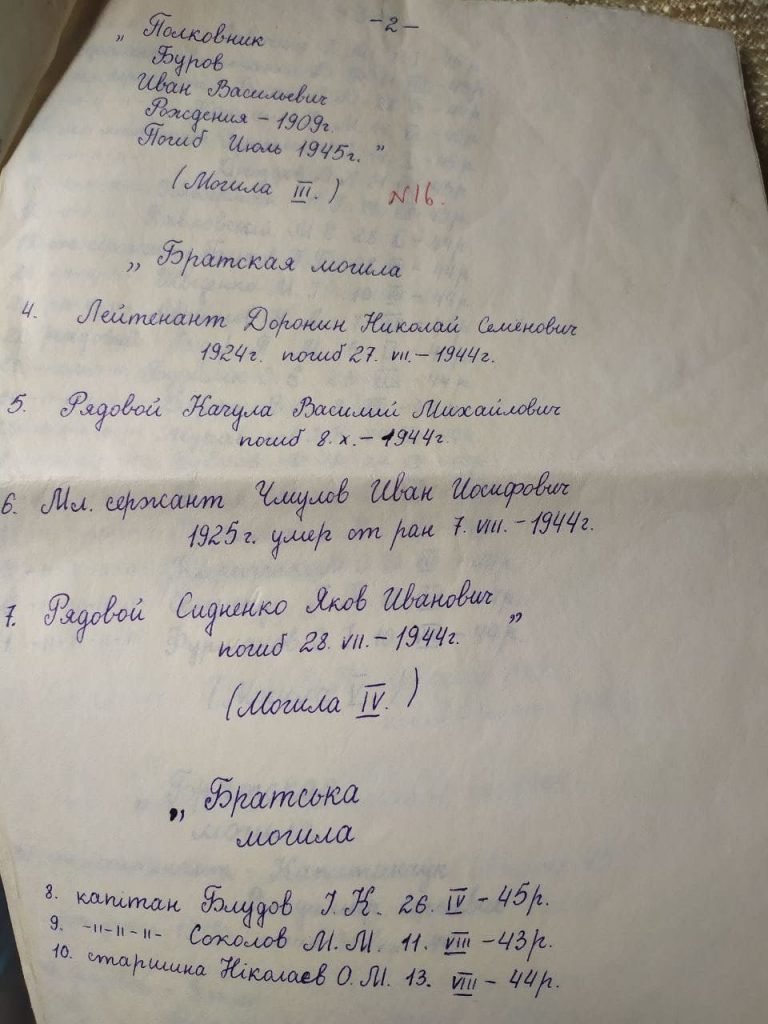 -2-
„ Полковник
Буров
Иван Васильевич
Рождения - 1909г.
Погиб Июль 1945г. "
(Могила III.) N16.
„ Братская могила
4. Лейтенант Доронин Николай Семёнович
1924г. погиб 27. VII. - 1944г.
5. Рядовой Качула Василий Михайлович
погиб 8. X. - 1944г.
6. Мл. сержант Чмулов Иван Иосифович
1925г. умер от ран 7. VIII. - 1944г.
7. Рядовой Сидненко Яков Иванович „
погиб 28. VII. - 1944г.
(Могила IV.)
„ Братська
могила
8. капітан Блудов І. К. 26. IV - 45р.
9. -"-"-"- Соколов М. М. 11. VIII - 43р.
10. старшина Ніколаєв О. М. 13. VIII - 44р.